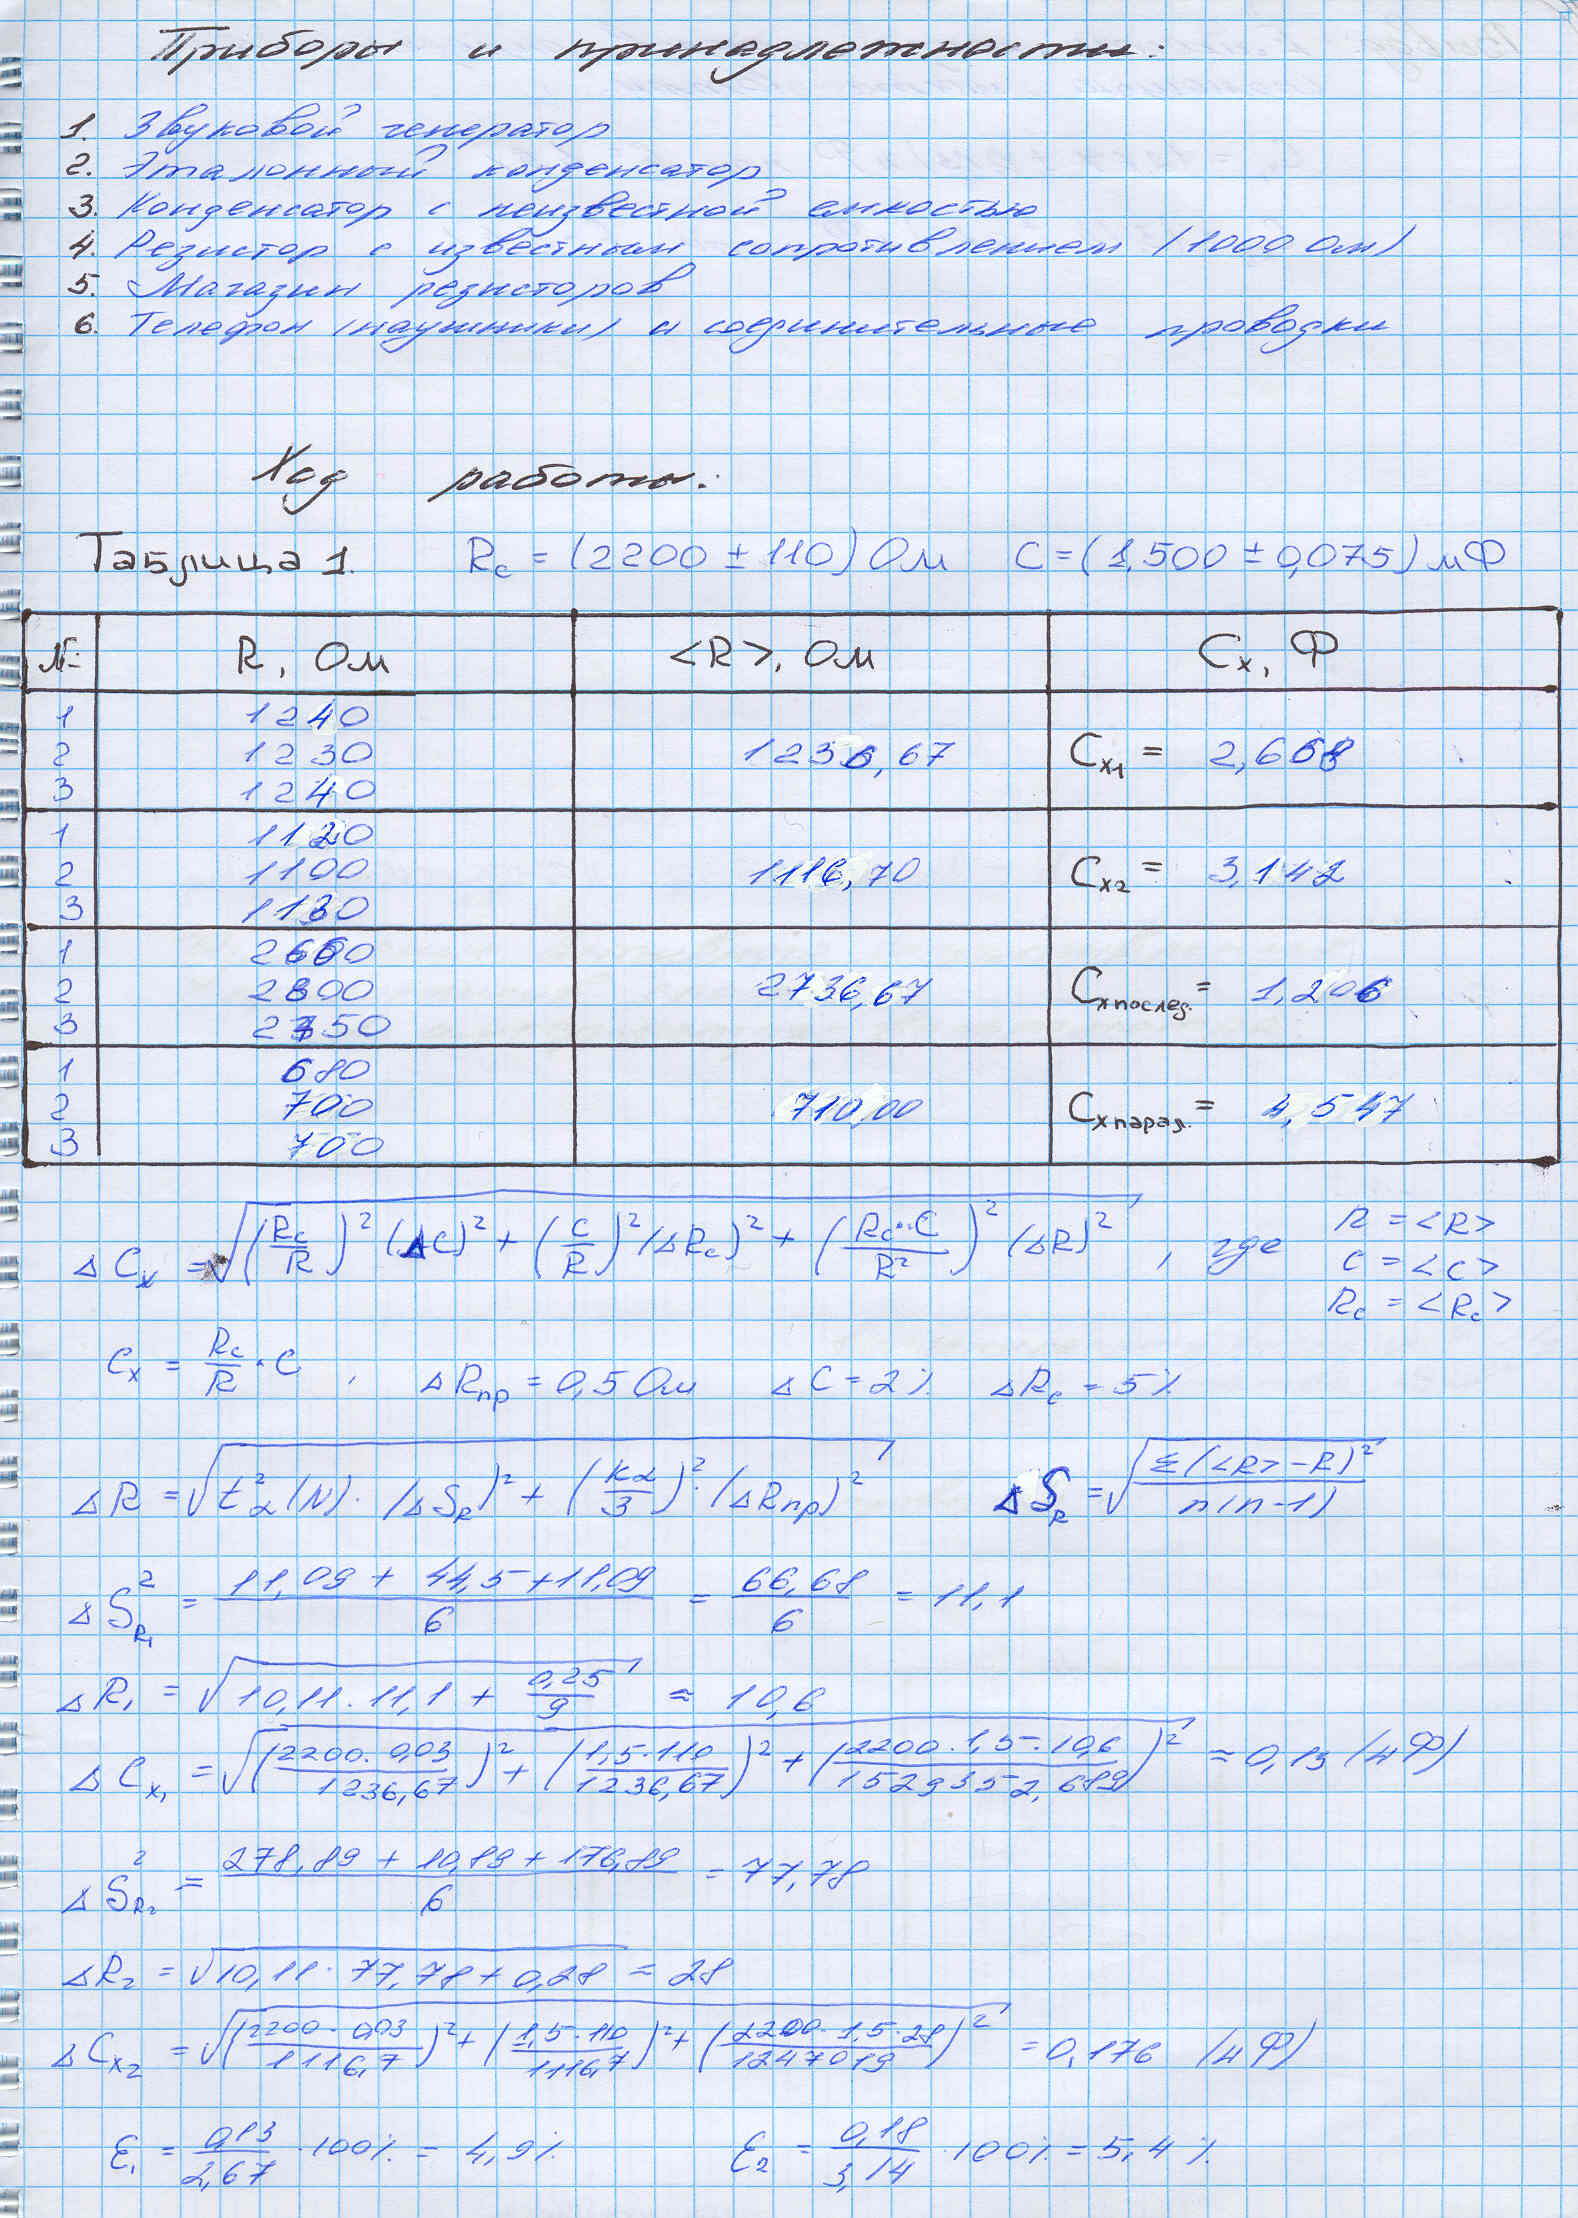 Приборы и принадлежности:
1. Звуковой генератор
2. Эталонный конденсатор
3. Конденсатор с неизвестной емкостью
4. Резистор с известным сопротивлением (1000 Ом)
5. Магазин резисторов
6. Телефон (наушники) и соединительные проводки
Ход работы:
Таблица 1. Rc = (2200 ± 110) Ом C = (1,500 ± 0,075) мФ
№ R, Ом <R>, Ом Cx, Ф
1 1240
2 1230 1236,67 Cx1 = 2,668
3 1240
1 1120
2 1100 1116,70 Cx2 = 3,142
3 1130
1 2660
2 2800 2736,67 Cx послед. = 1,206
3 2750
1 680
2 700 710,00 Cx парал. = 4,547
3 700
ΔCx = √((Rc/R)² (ΔC)² + (C/R)² (ΔRc)² + (Rc·C/R²)² (ΔR)²) , где R = <R>
C = <C>
Rc = <Rc>
Cx = Rc/R · C , ΔRпр = 0,5 Ом ΔC = 2% ΔRc = 5%
ΔR = √(t²α(N) · (ΔSR)² + (Kα/3)² · (ΔRпр)²) ΔSR = √(Σ(<R> - R)²/n(n-1))
ΔS²R1 = (11,09 + 44,5 + 11,09)/6 = 66,68/6 = 11,1
ΔR1 = √(10,11 · 11,1 + 0,25/9) ≈ 10,6
ΔCx1 = √((2200 · 0,03/1236,67)² + (1,5 · 110/1236,67)² + (2200 · 1,5 · 10,6/1529352,689)²) ≈ 0,13 (мФ)
ΔS²R2 = (278,89 + 10,89 + 176,89)/6 = 77,78
ΔR2 = √(10,11 · 77,78 + 0,28) = 28
ΔCx2 = √((2200 · 0,03/1116,7)² + (1,5 · 110/1116,7)² + (2200 · 1,5 · 28/1247019)²) = 0,176 (мФ)
ε1 = 0,13/2,67 · 100% = 4,9% ε2 = 0,18/3,14 · 100% = 5,4%